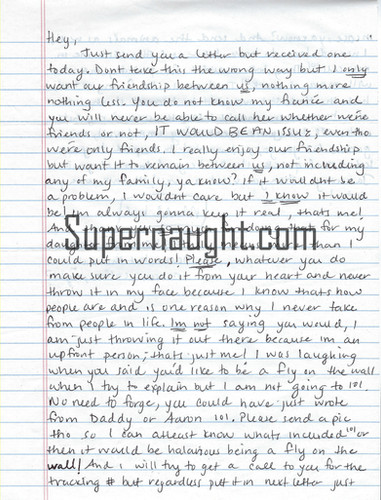 Hey,
Just send you a letter but received one
today. Dont take this the wrong way but I only
want our friendship between us, nothing more
nothing less. You do not know my fiancée and
you will never be able to call her whether we're
friends or not, IT WOULD BE AN ISSUE, even tho
we're only friends. I really enjoy our friendship
but want it to remain between us, not including
any of my family, ya know? If it wouldnt be
a problem, I wouldnt care but I know it would
be. Im always gonna keep it real, thats me!
And doing that for my
Supernaught.com
than I
could put in words! Please, whatever you do
make sure you do it from your heart and never
throw it in my face because I know thats how
people are and is one reason why I never take
from people in life. Im not saying you would, I
am just throwing it out there because im an
upfront person; thats just me! I was laughing
when you said you'd like to be a fly on the wall
when I try to explain but I am not going to lol.
No need to forge, you could have just wrote
from Daddy or Aaron lol. Please send a pic
tho so I can atleast know whats included lol or
then it would be halarious being a fly on the
wall! And I will try to get a call to you for the
tracking # but regardless put it in next letter just